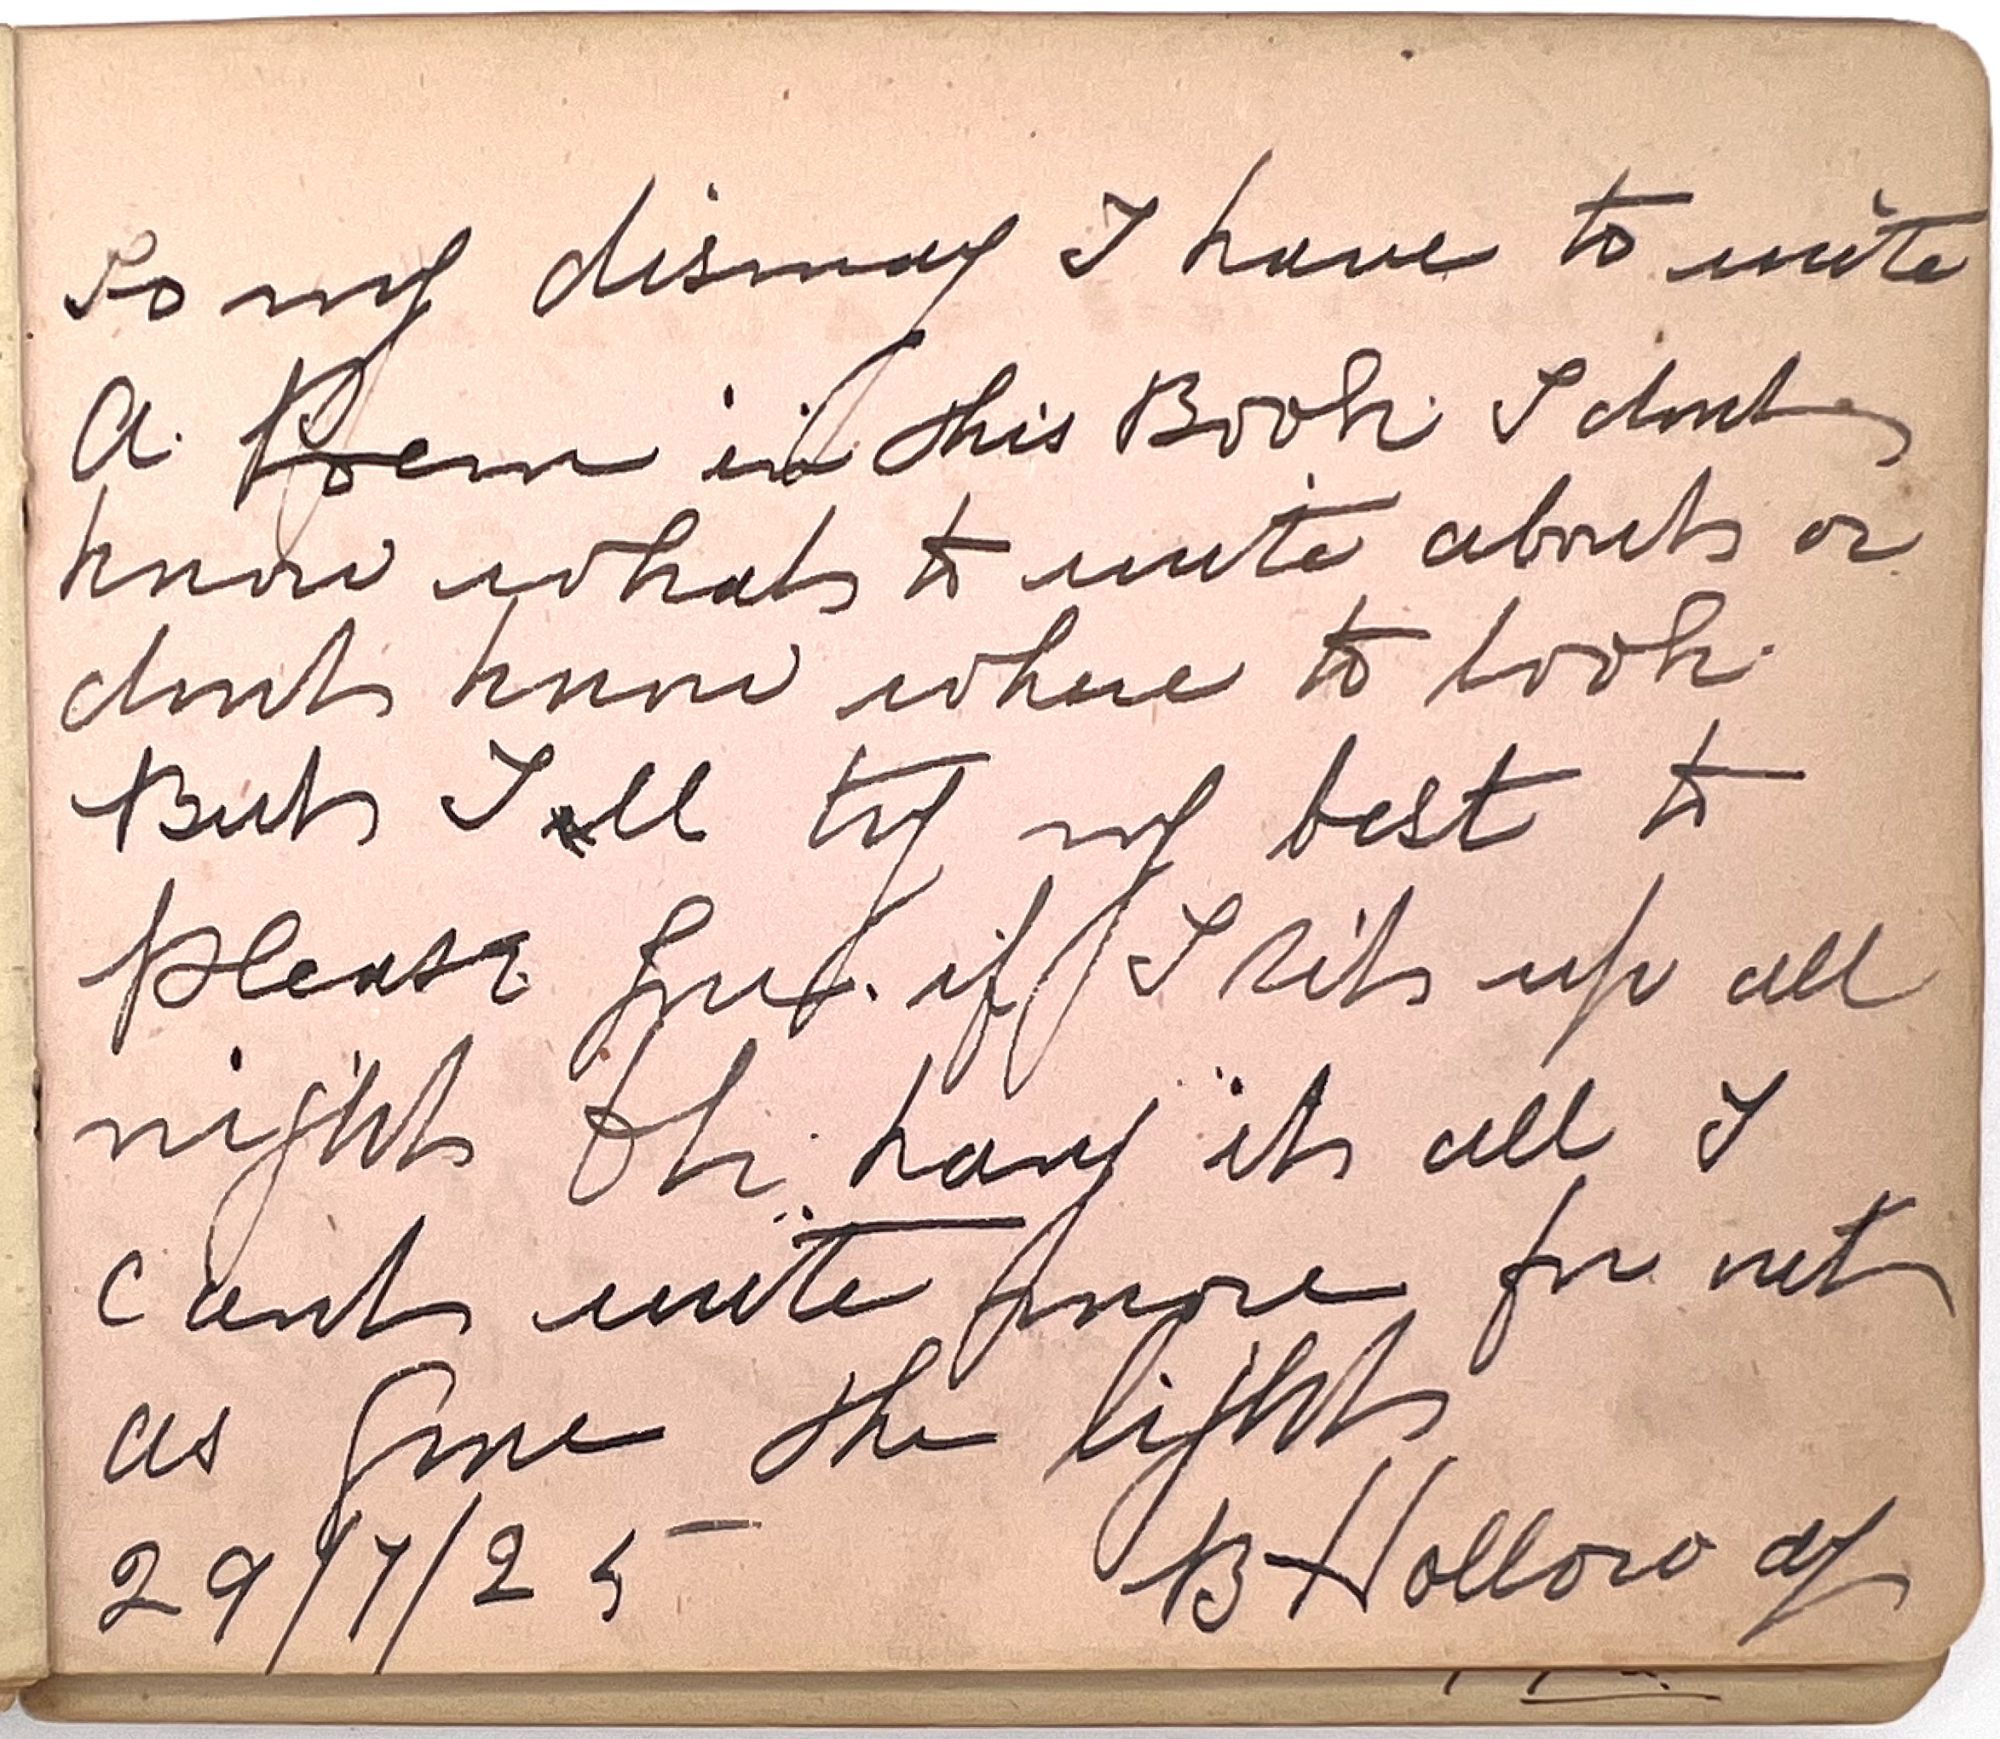 To my dismay I have to write
A. Poem in this Book. I dont
know what to write about or
dont know where to look.
But I ll try my best to
please you. if I sit up all
night Oh. hang it all I
cant write more for out
as gone the light
29/7/25 B Holloway